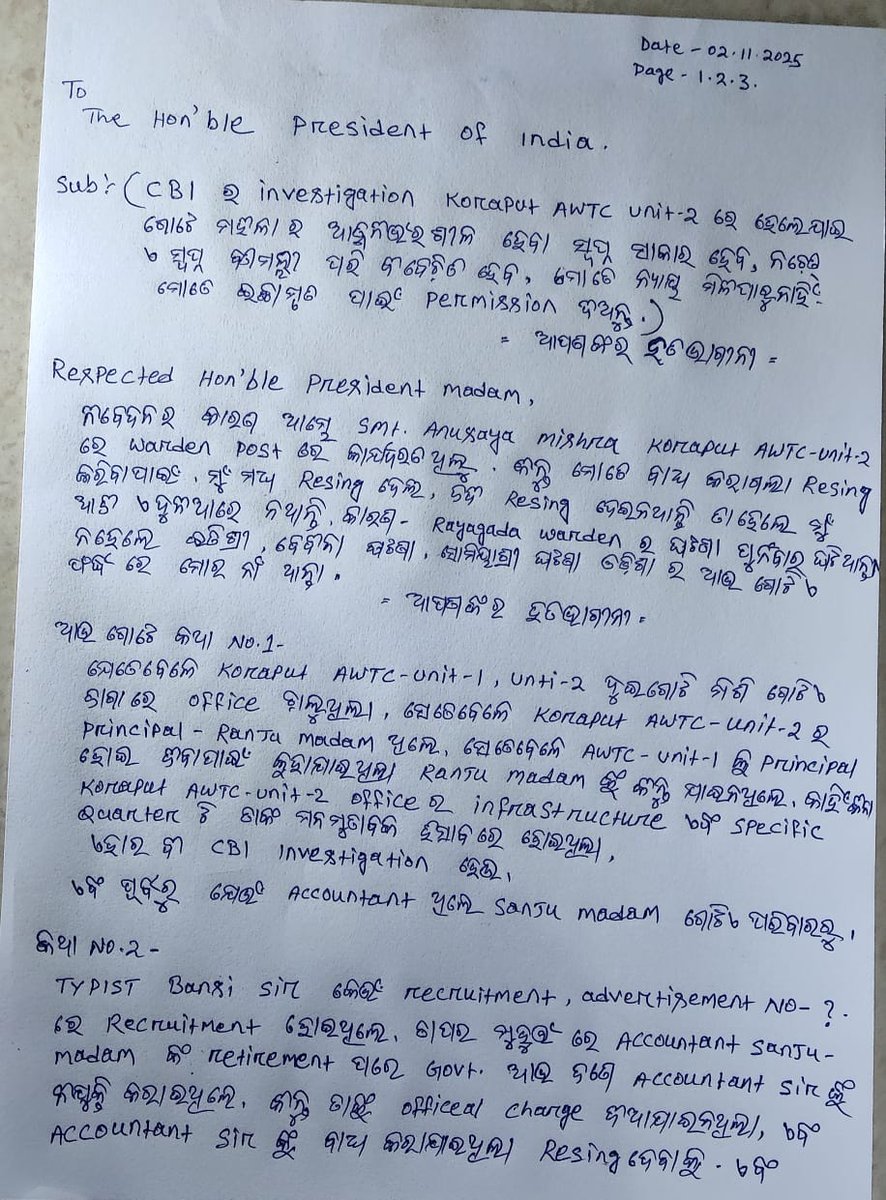 Date - 02.11.2025
Page - 1.2.3.
To
The Hon'ble President of India.
Sub:- (CBI ର investigation Koraput AWTC Unit-2 ରେ ହେଲେଯାଇ
ଗୋଟେ ମହିଳା ର ଆତ୍ମନିର୍ଭରଶୀଳ ହେବା ସ୍ୱପ୍ନ ସାକାର ହେବ, ନଚେତ
ସ୍ୱପ୍ନ ପରି ହେବ, ମୋତେ ନ୍ୟାୟ ମିଳିପାରୁନାହିଁ
ମୋତେ ଇଚ୍ଛାମୃତ ପାଇଁ Permission ଦିଅନ୍ତୁ.)
= ଆପଣଙ୍କର ହତଭାଗୀନୀ =
Respected Hon'ble President madam,
ନିବେଦନର କାରଣ ଆମ୍ଭେ Smt. Anusaya Mishra Koraput AWTC-unit-2
ରେ Warden Post ରେ କାର୍ଯ୍ୟରତ ଥିଲୁ. କିନ୍ତୁ ମୋତେ ବାଧ୍ୟ କରାଗଲା Resing
କରିବାପାଇଁ. ମୁଁ ମଧ୍ୟ Resing ଦେଲି, ଯଦି Resing ଦେଇନଥାନ୍ତି ତାହେଲେ ମୁଁ
ଆଜି ଏ ଦୁନିଆରେ ନଥାନ୍ତି, କାରଣ- Rayagada Warden ର ଘଟଣା ପୁନର୍ବାର ଘଟିଥାନ୍ତା
ନହେଲେ ଇତିଶ୍ରୀ, ଘଟଣା, ସୌମ୍ୟାଶ୍ରୀ ଘଟଣା ଓଡ଼ିଶା ର ଆଉ ଗୋଟିଏ
ରେ ମୋର ନାଁ ଥାନ୍ତା.
= ଆପଣଙ୍କର ହତଭାଗୀନୀ =
ଆଉ ଗୋଟେ କଥା No.1-
ଯେତେବେଳେ Koraput AWTC-unit-1, Unti-2 ଦୁଇଗୋଟି ମିଶି ଗୋଟିଏ
ଜାଗାରେ office ଚାଲୁଥିଲା, ସେତେବେଳେ Koraput AWTC-unit-2 ର
Principal - Ranju madam ଥିଲେ, ସେତେବେଳେ AWTC-unit-1 କୁ Principal
ହୋଇ ଯିବାପାଇଁ କୁହାଯାଇଥିଲା Ranju madam ଙ୍କୁ କିନ୍ତୁ ଯାଇନଥିଲେ, କାହିଁକିନା
Koraput AWTC-unit-2 office ର infrastructure ଏବଂ Specific
Quarter ଟି ତାଙ୍କ ମନମୁତାବକ ହିସାବରେ ହୋଇଥିଲା,
CBI Investigation ହେଉ,
ଏବଂ ପୂର୍ବରୁ ଯେଉଁ Accountant ଥିଲେ Sanju madam ଗୋଟିଏ ପରିବାରରୁ,
କଥା No.2-
TYPIST Bansi Sir କେଉଁ recruitment, advertisement No- ?.
ରେ Recruitment ହୋଇଥିଲେ, ତାପର ମୁହୂର୍ତ୍ତ ରେ Accountant Sanju-
madam କଂ retirement ପରେ Govt. ଆଉ ଜଣେ Accountant Sir ଙ୍କୁ
ନିଯୁକ୍ତି କରାଇଥିଲେ, କିନ୍ତୁ ତାଙ୍କୁ officeal Charge ଦିଆଯାଇନଥିଲା, ଏବଂ
Accountant Sir ଙ୍କୁ ବାଧ୍ୟ କରାଯାଇଥିଲା Resing ଦେବାକୁ. ଏବଂ